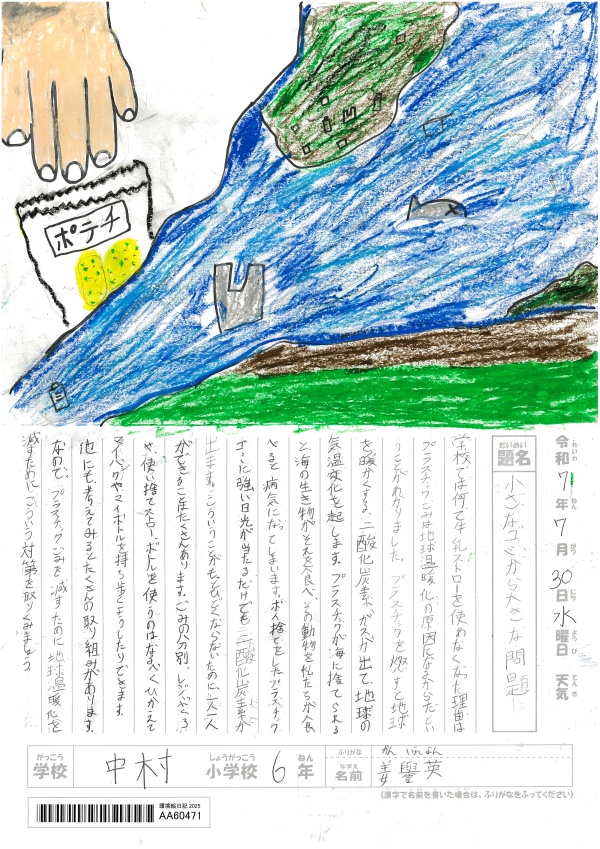 ポテチ
令和7年7月30日水曜日 天気
れいわ ねん がつ にち ようび てんき
だいめい
題名 小さなゴミから大きな問題に
学校では何で牛乳ストローを使わなくなった理由は
プラスチックごみは地球温暖化の原因になるからだとい
うことがわかりました。プラスチックを燃すと地球
を暖かくする二酸化炭素が出て、地球の
気温変化を起します。プラスチックが海に捨てられる
と海の生き物がそれを食べ、その動物を私たちが食
べると病気になってしまいます。ポイ捨てをしたプラスチック
ゴミに強い日光が当たるだけでも二酸化炭素が
出ます。こういうことがもっとひどくならないために一人一人
ができることはたくさんあります。ごみの分別、レジぶくろ
や使い捨てボトルを使うのはなるべくひかえて
マイバッグやマイボトルを持ち歩くようしたりできます。
他にも考えてみるとたくさんの取り組みがあります。
なので、プラスチックごみを減すために地球温暖化を
減すためにこういう対策を取りくみましょう
がっこう しょうがっこう ねん ふりがな かん
学校 中村 小学校 6年 なまえ 名前 姜 英
(漢字で名前を書いた場合は、ふりがなをふってください)
環境絵日記 2025
AA60471